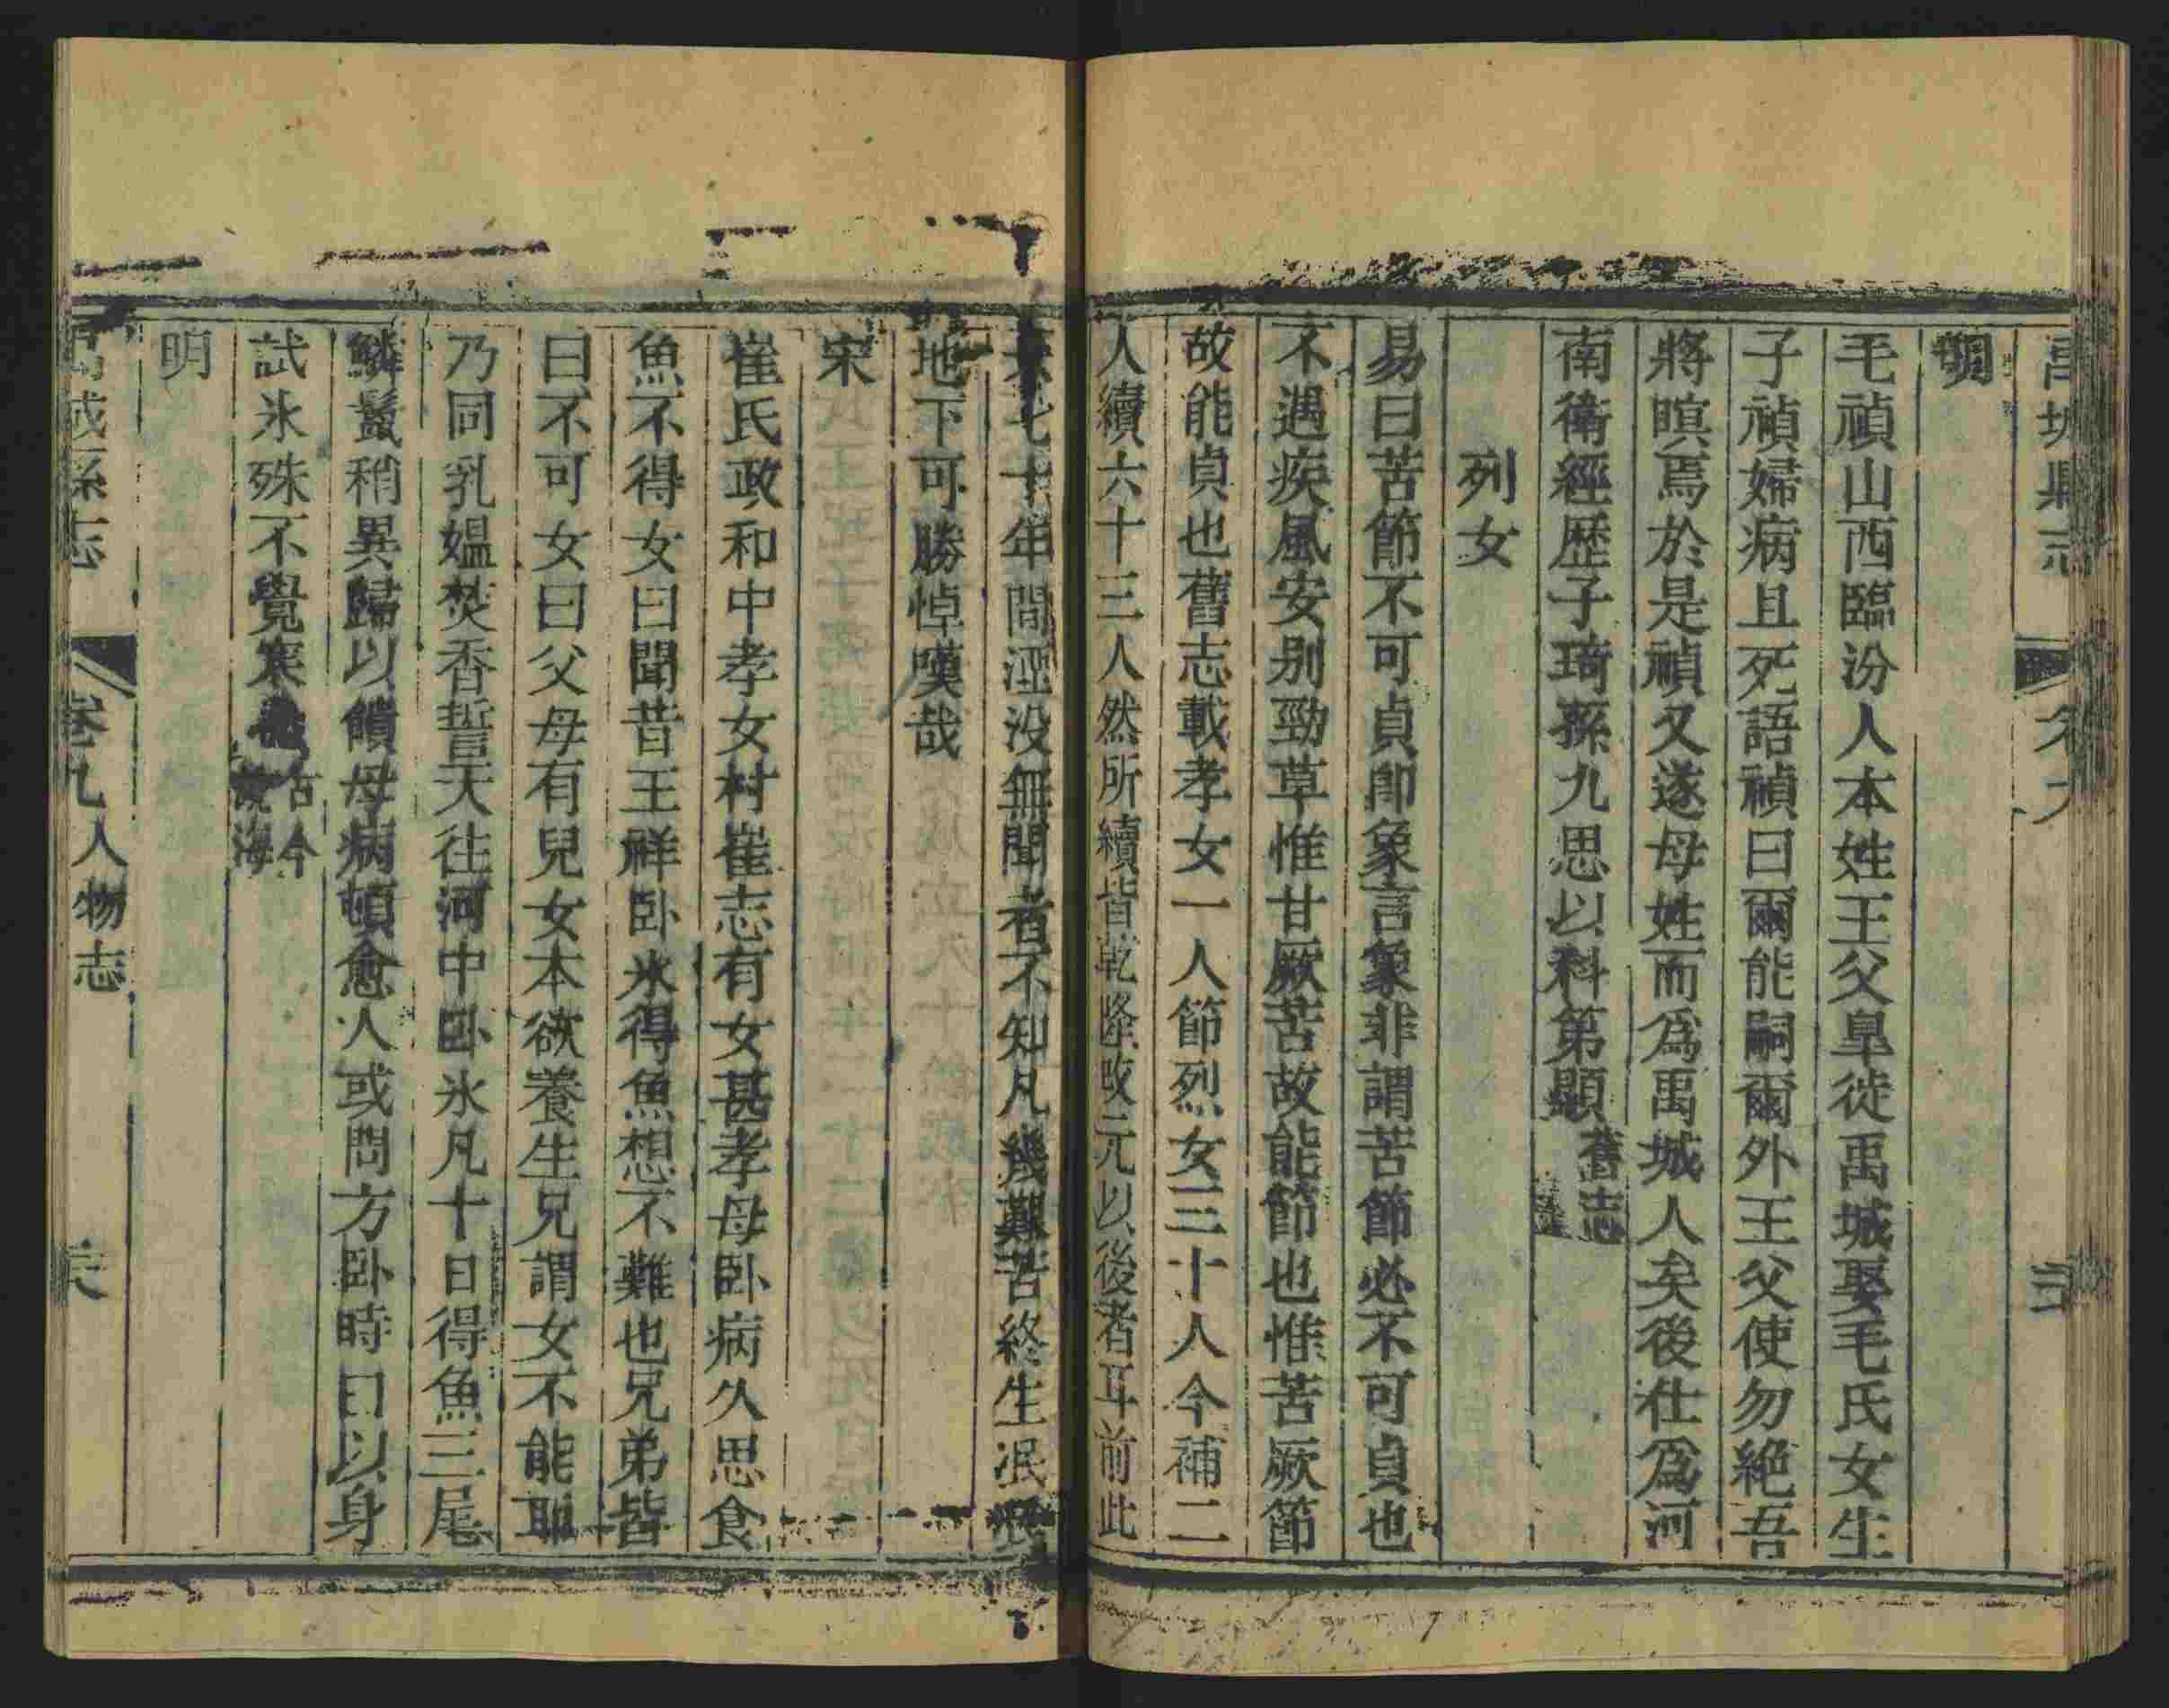 禹城縣志
明
毛禎山西臨汾人本姓王父臯徙禹城娶毛氏女生
子禎婦病且死語禎曰爾能嗣爾外王父使勿絶吾
將瞑焉於是禎又遂母姓而為禹城人矣後仕為河
南衛經歷子琦孫九思以科第顯舊志
列女
易曰苦節不可貞卽象言象非謂苦節必不可貞也
不遇疾風安别勁草惟甘厥苦故能節也惟苦厥節
故能貞也舊志載孝女一人節烈女三十人今補二
人續六十三人然所續皆乾隆改元以後者耳前此
七十年間湮没無聞者不知凡幾艱苦終生泯
地下可勝悼嘆哉
宋
崔氏政和中孝女村崔志有女甚孝母卧病久思食
魚不得女曰聞昔王祥卧氷得魚想不難也兄弟皆
曰不可女曰父母有兒女本欲養生兄謂女不能耶
乃同乳媪焚香誓天往河中卧氷凡十日得魚三尾
鱗鬛稍異歸以饋母病頓愈人或問方卧時曰以身
試氷殊不覺寒古今
海
明
禹城縣志 卷九人物志